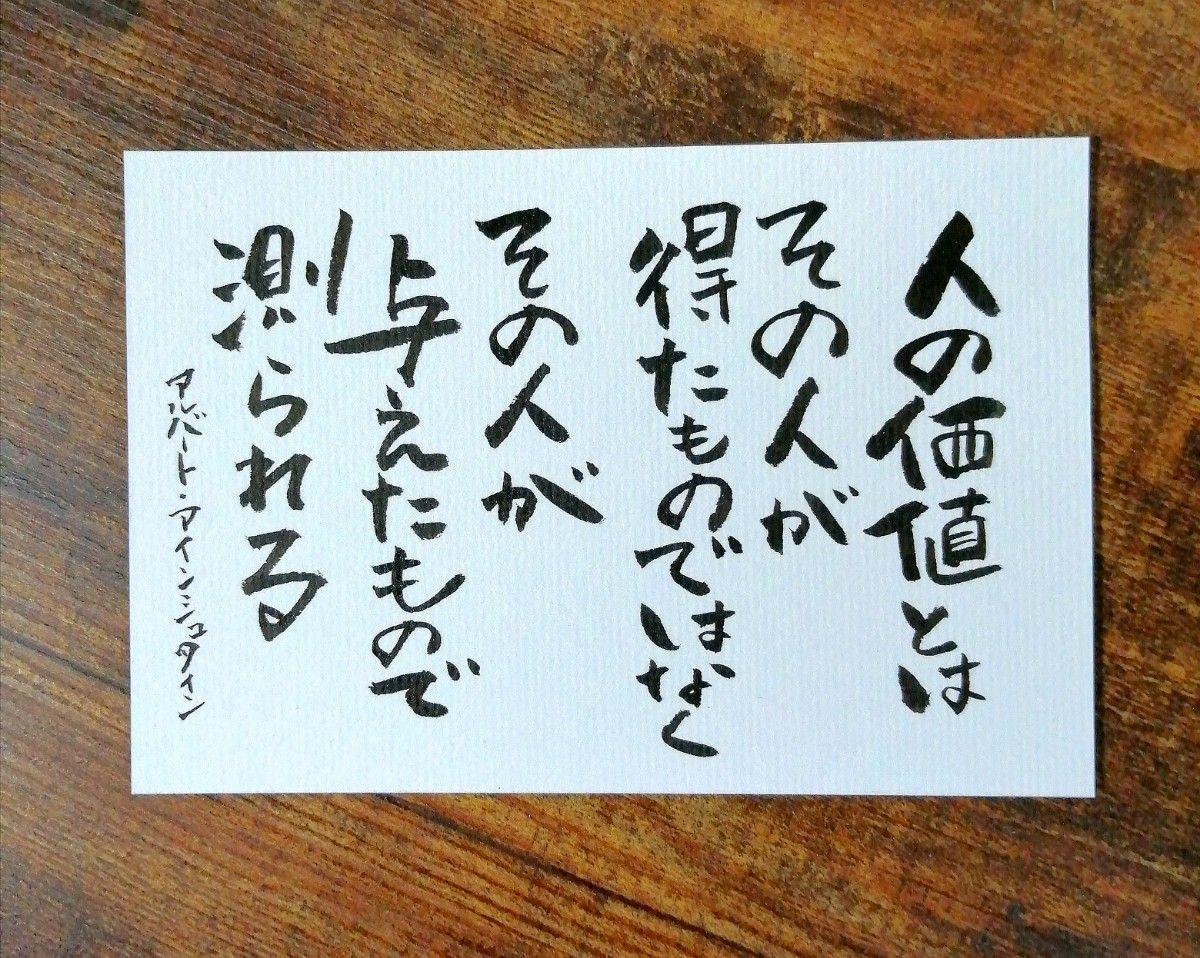 人の価値とは
その人が
得たものではなく
その人が
与えたもので
測られる
アルバート・アインシュタイン